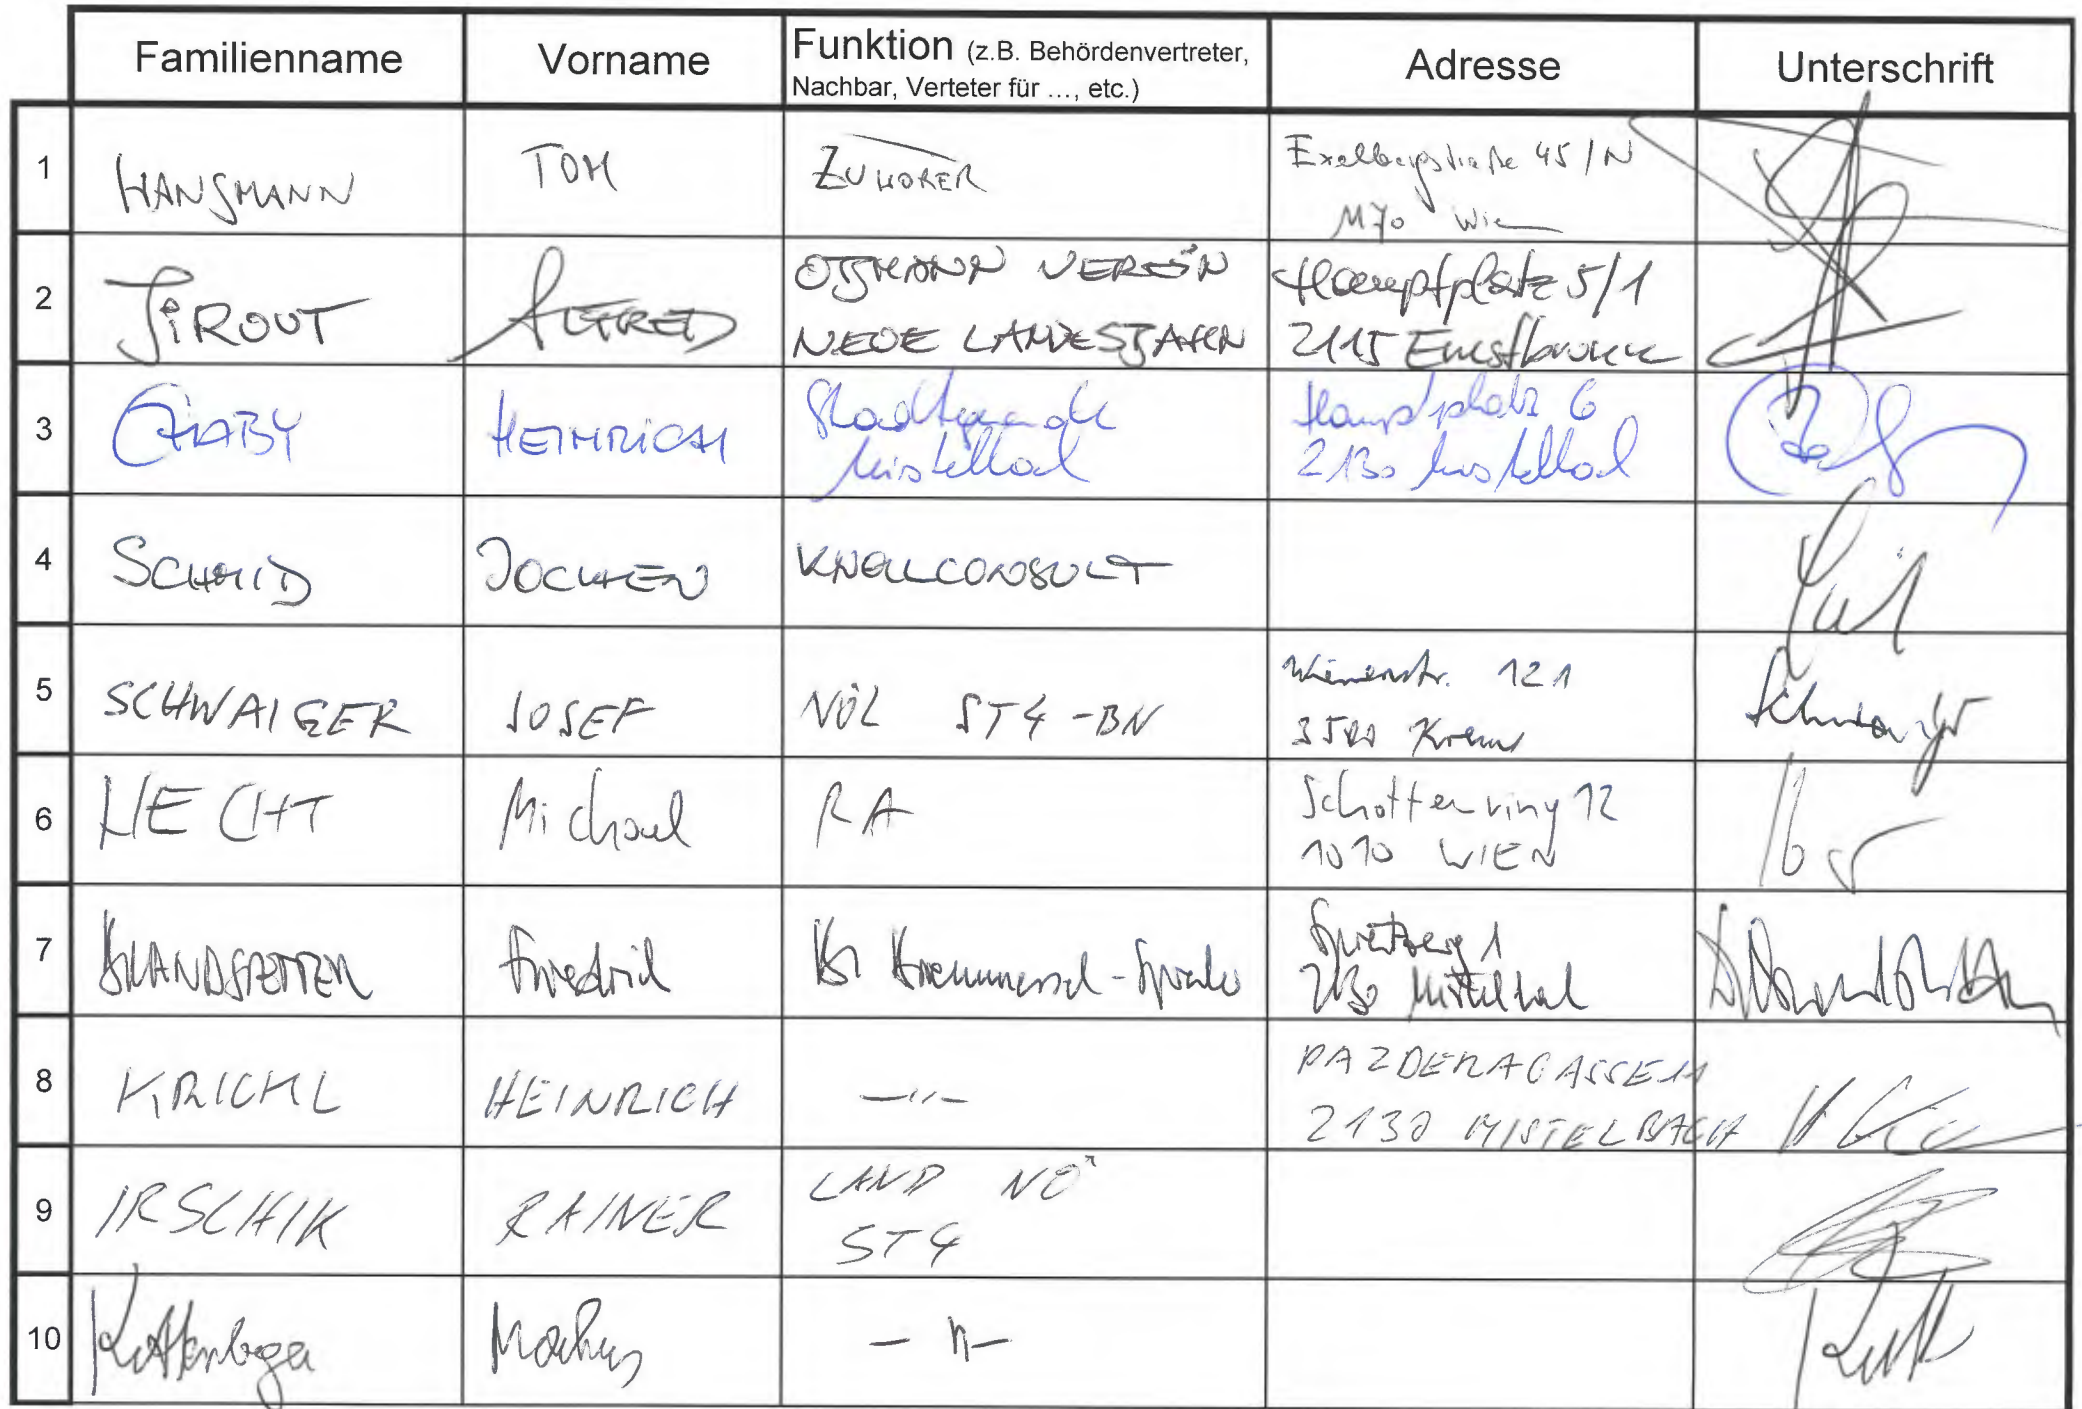 Familienname Vorname Funktion (z.B. Behördenvertreter, Nachbar, Verteter für ..., etc.) Adresse Unterschrift
1 HANSMANN TOM ZUHÖRER Exelbergstraße 45/N
1170 Wien
2 JIROUT ALFRED OBMANN VEREIN Hauptplatz 5/1
NEUE LANDESBAHN 2115 Ernstbrunn
3 HEINRICH Stadtgemeinde Hauptplatz 6
Mistelbach 2130 Mistelbach
4 SCHMID JOCHEN KNOLLCONSULT
5 SCHWAIGER JOSEF NÖL ST4-BN Wienerstr. 121
3500 Krems
6 HECHT Michael RA Schottenring 12
1010 WIEN
7 BRANDSTETTER Friedrich 1
2130 Mistelbach
8 KRICKL HEINRICH —"— PAZDERAGASSE 11
2130 MISTELBACH
9 IRSCHIK RAINER LAND NÖ
ST4
10 Markus —"—